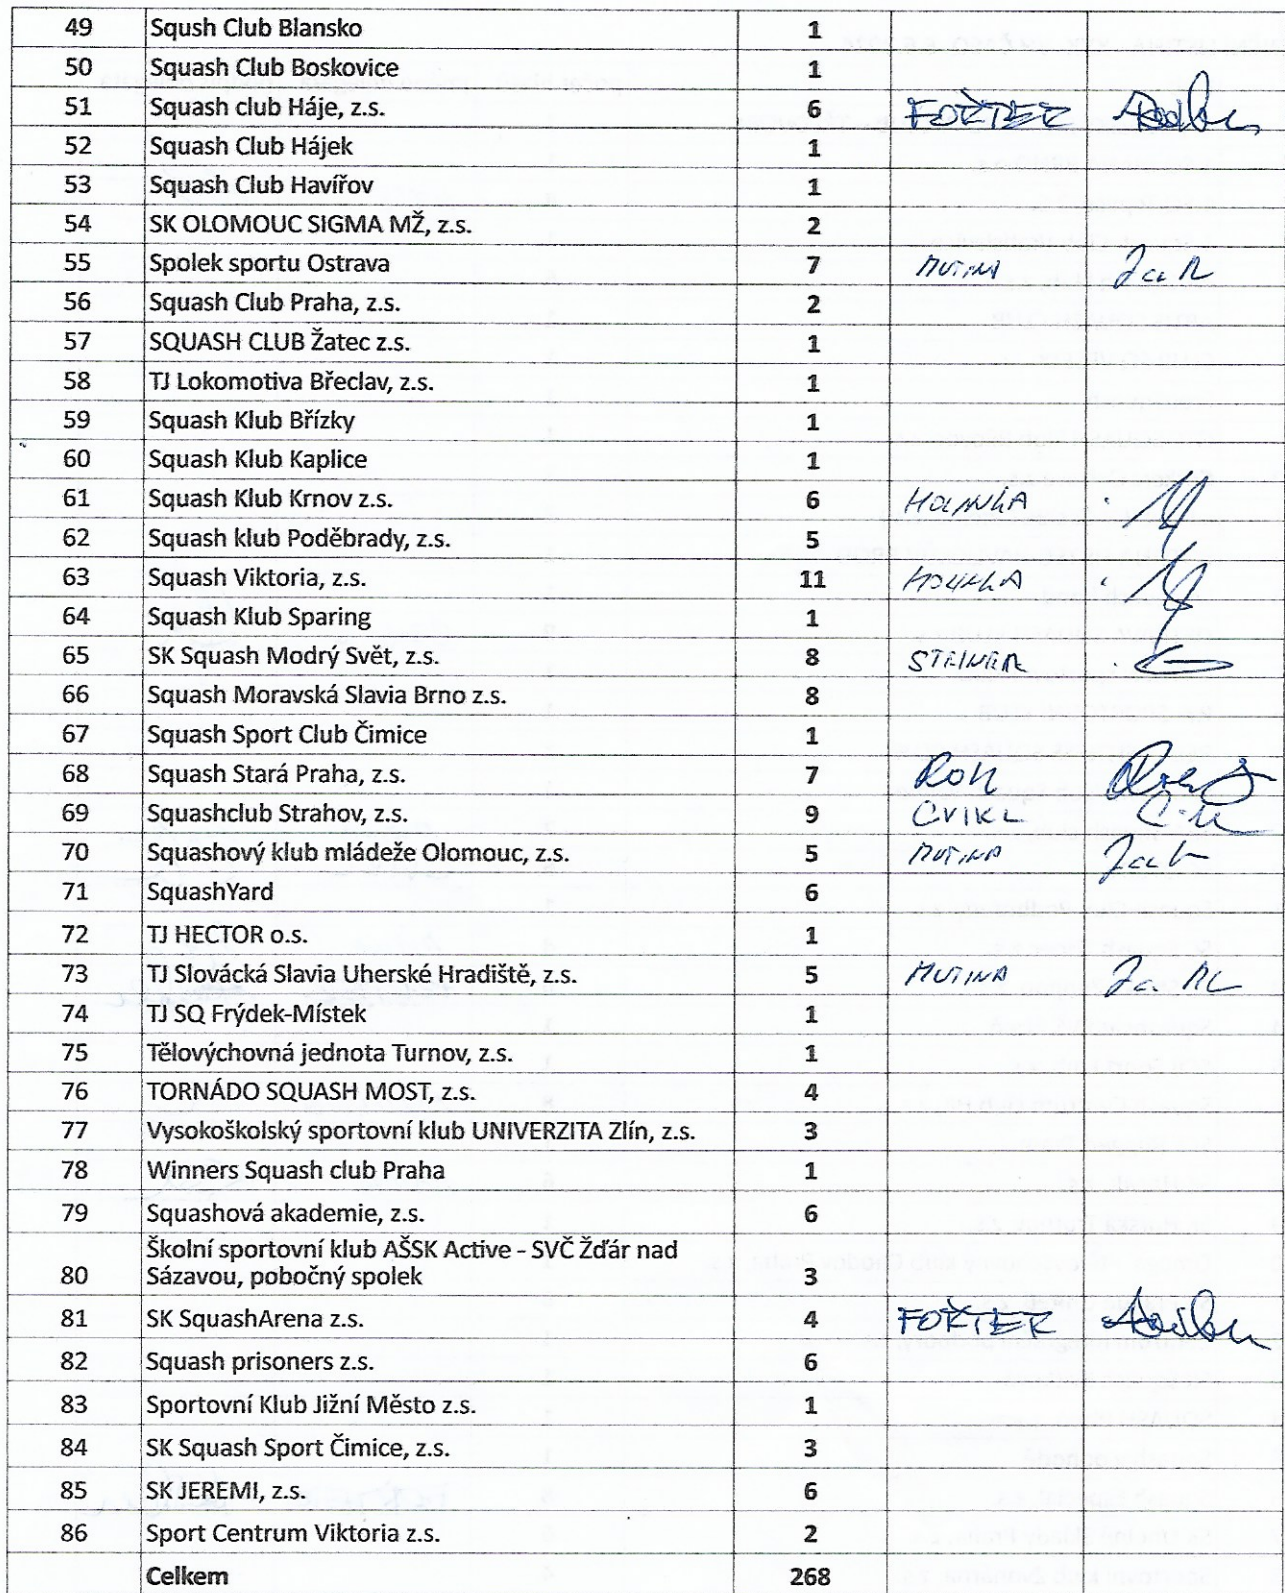 49 Sqush Club Blansko 1
50 Squash Club Boskovice 1
51 Squash club Háje, z.s. 6 FOŘTER
52 Squash Club Hájek 1
53 Squash Club Havířov 1
54 SK OLOMOUC SIGMA MŽ, z.s. 2
55 Spolek sportu Ostrava 7 MUTINA
56 Squash Club Praha, z.s. 2
57 SQUASH CLUB Žatec z.s. 1
58 TJ Lokomotiva Břeclav, z.s. 1
59 Squash Klub Břízky 1
60 Squash Klub Kaplice 1
61 Squash Klub Krnov z.s. 6
62 Squash klub Poděbrady, z.s. 5
63 Squash Viktoria, z.s. 11
64 Squash Klub Sparing 1
65 SK Squash Modrý Svět, z.s. 8 STEINER
66 Squash Moravská Slavia Brno z.s. 8
67 Squash Sport Club Čimice 1
68 Squash Stará Praha, z.s. 7
69 Squashclub Strahov, z.s. 9 CVIKL
70 Squashový klub mládeže Olomouc, z.s. 5 MUTINA
71 SquashYard 6
72 TJ HECTOR o.s. 1
73 TJ Slovácká Slavia Uherské Hradiště, z.s. 5 MUTINA
74 TJ SQ Frýdek-Místek 1
75 Tělovýchovná jednota Turnov, z.s. 1
76 TORNÁDO SQUASH MOST, z.s. 4
77 Vysokoškolský sportovní klub UNIVERZITA Zlín, z.s. 3
78 Winners Squash club Praha 1
79 Squashová akademie, z.s. 6
Školní sportovní klub AŠSK Active - SVČ Žďár nad
80 Sázavou, pobočný spolek 3
81 SK SquashArena z.s. 4 FOŘTER
82 Squash prisoners z.s. 6
83 Sportovní Klub Jižní Město z.s. 1
84 SK Squash Sport Čimice, z.s. 3
85 SK JEREMI, z.s. 6
86 Sport Centrum Viktoria z.s. 2
Celkem 268